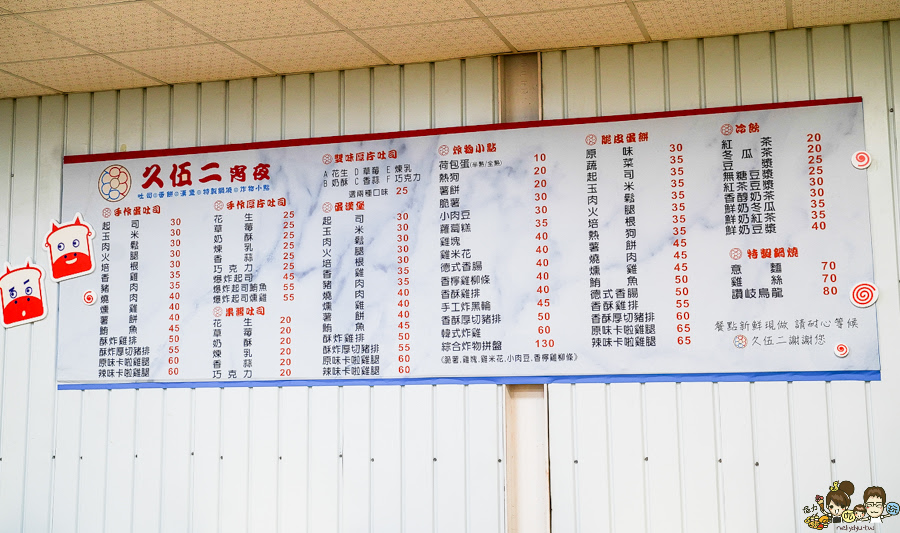 久伍二宵夜
吐司 蛋餅 漢堡 特製鍋燒 炸物小點
手作蛋吐司
起司 30
玉米 30
肉鬆 30
火腿 30
培根 35
香雞 35
豬肉 35
燒肉 40
燻雞 40
薯餅 40
鮪魚 45
酥炸雞排 50
酥炸厚切豬排 55
原味卡啦雞腿 60
辣味卡啦雞腿 60
手作厚片吐司
花生 25
草莓 25
奶酥 25
煉乳 25
香蒜 25
巧克力 25
爆炸起司 45
爆炸起司鮪魚 55
爆炸起司燻雞 55
吐司
花生 20
草莓 20
奶酥 20
煉乳 20
香蒜 20
巧克力 20
雙味厚片吐司
A 花生 D 草莓 E 煉乳
B 奶酥 C 香蒜 F 巧克力
選兩種口味 25
蛋漢堡
起司 30
玉米 30
肉鬆 30
火腿 30
培根 35
香雞 35
豬肉 35
燒肉 40
燻雞 40
薯餅 40
鮪魚 45
酥炸雞排 50
酥炸厚切豬排 55
原味卡啦雞腿 60
辣味卡啦雞腿 60
炸物小點
荷包蛋(半熟/全熟) 10
熱狗 20
薯餅 20
脆薯 30
小肉豆 30
蘿蔔糕 35
雞塊 40
雞米花 40
德式香腸 40
香檸雞柳條 40
香酥雞排 40
手工炸黑輪 45
香酥厚切豬排 50
韓式炸雞 60
綜合炸物拼盤 130
(脆薯.雞塊.雞米花.小肉豆.香檸雞柳條)
脆皮蛋餅
原味 30
蔬菜 35
起司 35
玉米 35
肉鬆 35
火腿 35
培根 35
熱狗 35
薯餅 45
燒肉 45
燻雞 45
鮪魚 50
德式香腸 50
香酥雞排 55
香酥厚切豬排 60
原味卡啦雞腿 65
辣味卡啦雞腿 65
冷飲
紅茶 20
冬瓜茶 20
豆漿 20
無糖豆漿 25
紅茶豆漿 30
香醇奶茶 30
鮮奶冬瓜 35
鮮奶紅茶 35
鮮奶豆漿 40
特製鍋燒
意麵 70
雞絲 70
讚岐烏龍 80
餐點新鮮現做 請耐心等候
久伍二謝謝您
nellydyu.tw